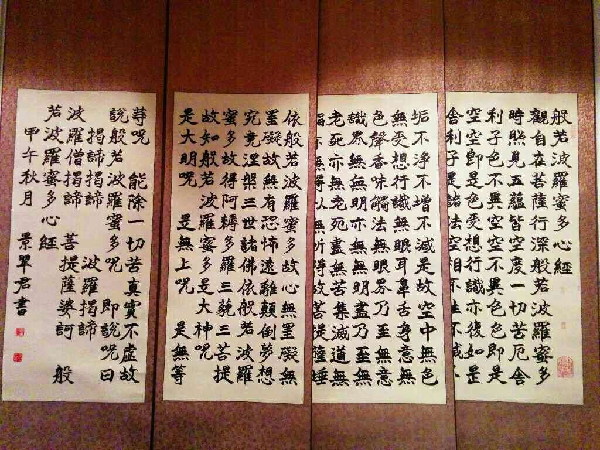 般若波羅蜜多心經
觀自在菩薩行深般若波羅蜜多
時照見五蘊皆空度一切苦厄舍
利子色不異空空不異色色即是
空空即是色受想行識亦復如是
舍利子是諸法空相不生不滅不
垢不淨不增不減是故空中無色
無受想行識無眼耳鼻舌身意無
色聲香味觸法無眼界乃至無意
識界無無明亦無無明盡乃至無
老死亦無老死盡無苦集滅道無
智亦無得以無所得故菩提薩埵
依般若波羅蜜多故心無罣礙無
罣礙故無有恐怖遠離顛倒夢想
究竟涅槃三世諸佛依般若波羅
蜜多故得阿耨多羅三藐三菩提
故知般若波羅蜜多是大神呪
是大明呪 是無上呪 是無等
等呪 能除一切苦真實不虛故
說般若波羅蜜多呪 即說呪曰
揭諦揭諦 波羅揭諦
波羅僧揭諦 菩提薩婆訶 般
若波羅蜜多心經
甲午秋月 景翠君書